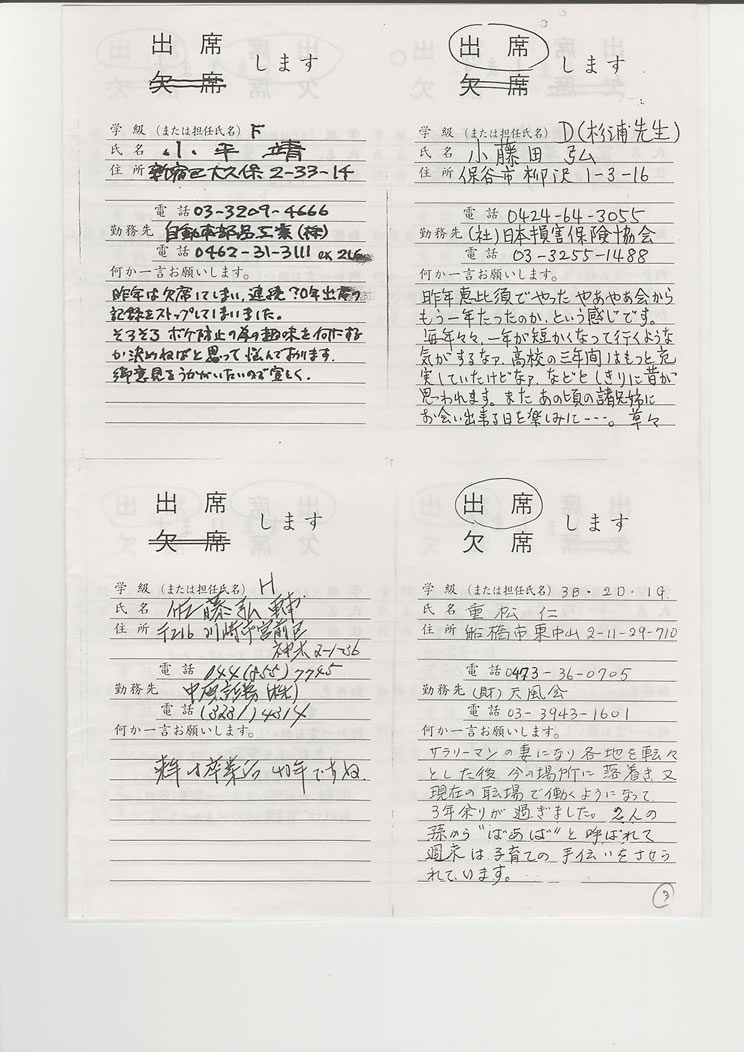 出席
欠席
します
学級（または担任氏名）F
氏名 小平 靖
住所 新宿区大久保 2-33-14
電話 03-3209-4666
勤務先 自動車部品工業(株)
電話 0462-31-3111 ex
何か一言お願いします。
昨年は欠席してしまい、連続 30年出席の
記録をストップしてしまいました。
そろそろ ボケ防止の為の趣味を何にする
か決めねばと思って悩んでおります.
御意見をうかがいたいので宜しく.
出席
欠席
します
学級（または担任氏名）D(杉浦先生)
氏名 小藤田 弘
住所 保谷市 柳沢 1-3-16
電話 0424-64-3055
勤務先 (社)日本損害保険協会
電話 03-3255-1488
何か一言お願いします。
昨年恵比須でやった やあやあ会から
もう一年たったのか、という感じです。
毎年々々、一年が短かくなって行くような
気がするなァ、高校の三年間はもっと充
実していたけどなァ、などとしきりに昔が
思われます。また あの頃の諸兄姉に
お会い出来る日を楽しみに---。 草々
出席
欠席
します
学級（または担任氏名）H
氏名 佐藤弘
住所 〒216 川崎市宮前区
神木2-1-36
電話 044(855)7745
勤務先 証券(株)
電話 (3231)4314
何か一言お願いします。
来年は卒業后40年ですね.
出席
欠席
します
学級（または担任氏名）3B・2D・1G.
氏名 重松 仁
住所 船橋市東中山 2-11-29-710
電話 0473-36-0705
勤務先 (財)天風会
電話 03-3943-1601
何か一言お願いします。
サラリーマンの妻になり各地を転々
とした後 今の場所に落着き又
現在の職場で働くようになって
3年余りが過ぎました。2人の
孫から“ばあば”と呼ばれて
週末は子育ての手伝いをさせら
れています。
3